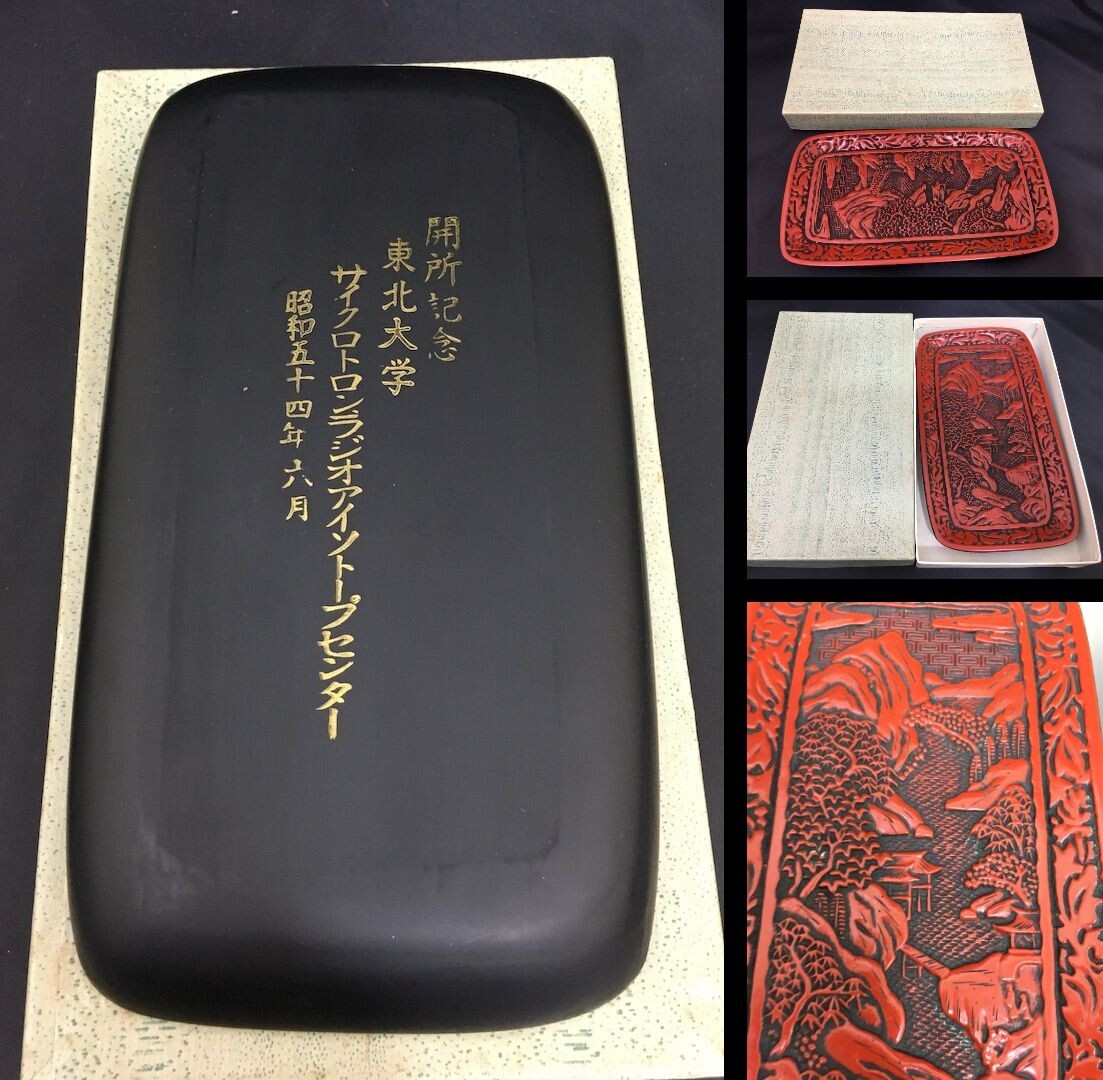 開所記念
東北大学
サイクロトロンラジオアイソトープセンター
昭和五十四年六月